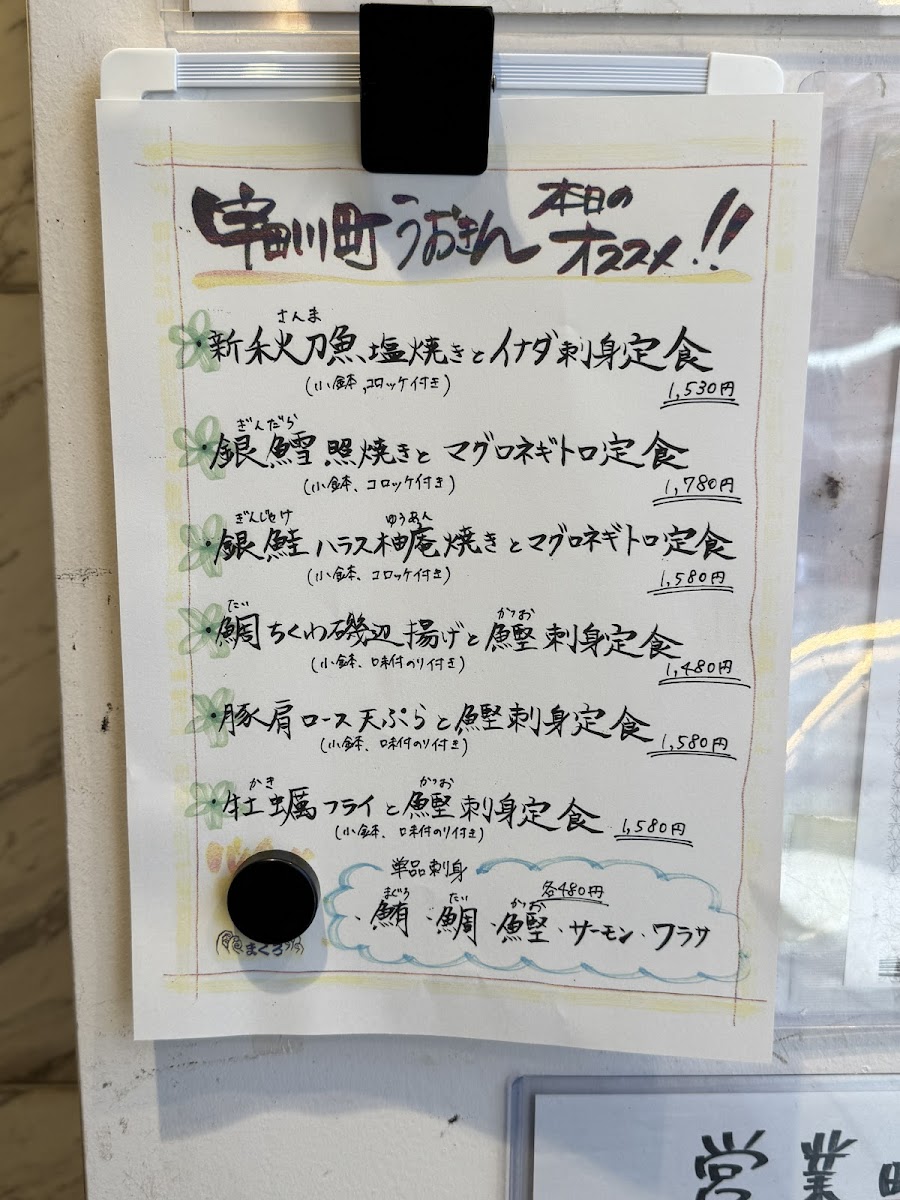 宇田川町 うおきん 本日のオススメ!!
さんま
・新秋刀魚塩焼きとイナダ刺身定食
(小鉢、コロッケ付き)
1,530円
ぎんだら
・銀鱈照焼きとマグロネギトロ定食
(小鉢、コロッケ付き)
1,780円
ぎんじゃけ ゆうあん
・銀鮭ハラス柚庵焼きとマグロネギトロ定食
(小鉢、コロッケ付き)
1,580円
たい かつお
・鯛ちくわ磯辺揚げと鰹刺身定食
(小鉢、味付のり付き)
1,480円
・豚肩ロース天ぷらと鰹刺身定食
(小鉢、味付のり付き)
1,580円
かき かつお
・牡蠣フライと鰹刺身定食
(小鉢、味付のり付き)
1,580円
単品刺身
各480円
まぐろ たい かつお
・鮪・鯛・鰹・サーモン・ワラサ
営業